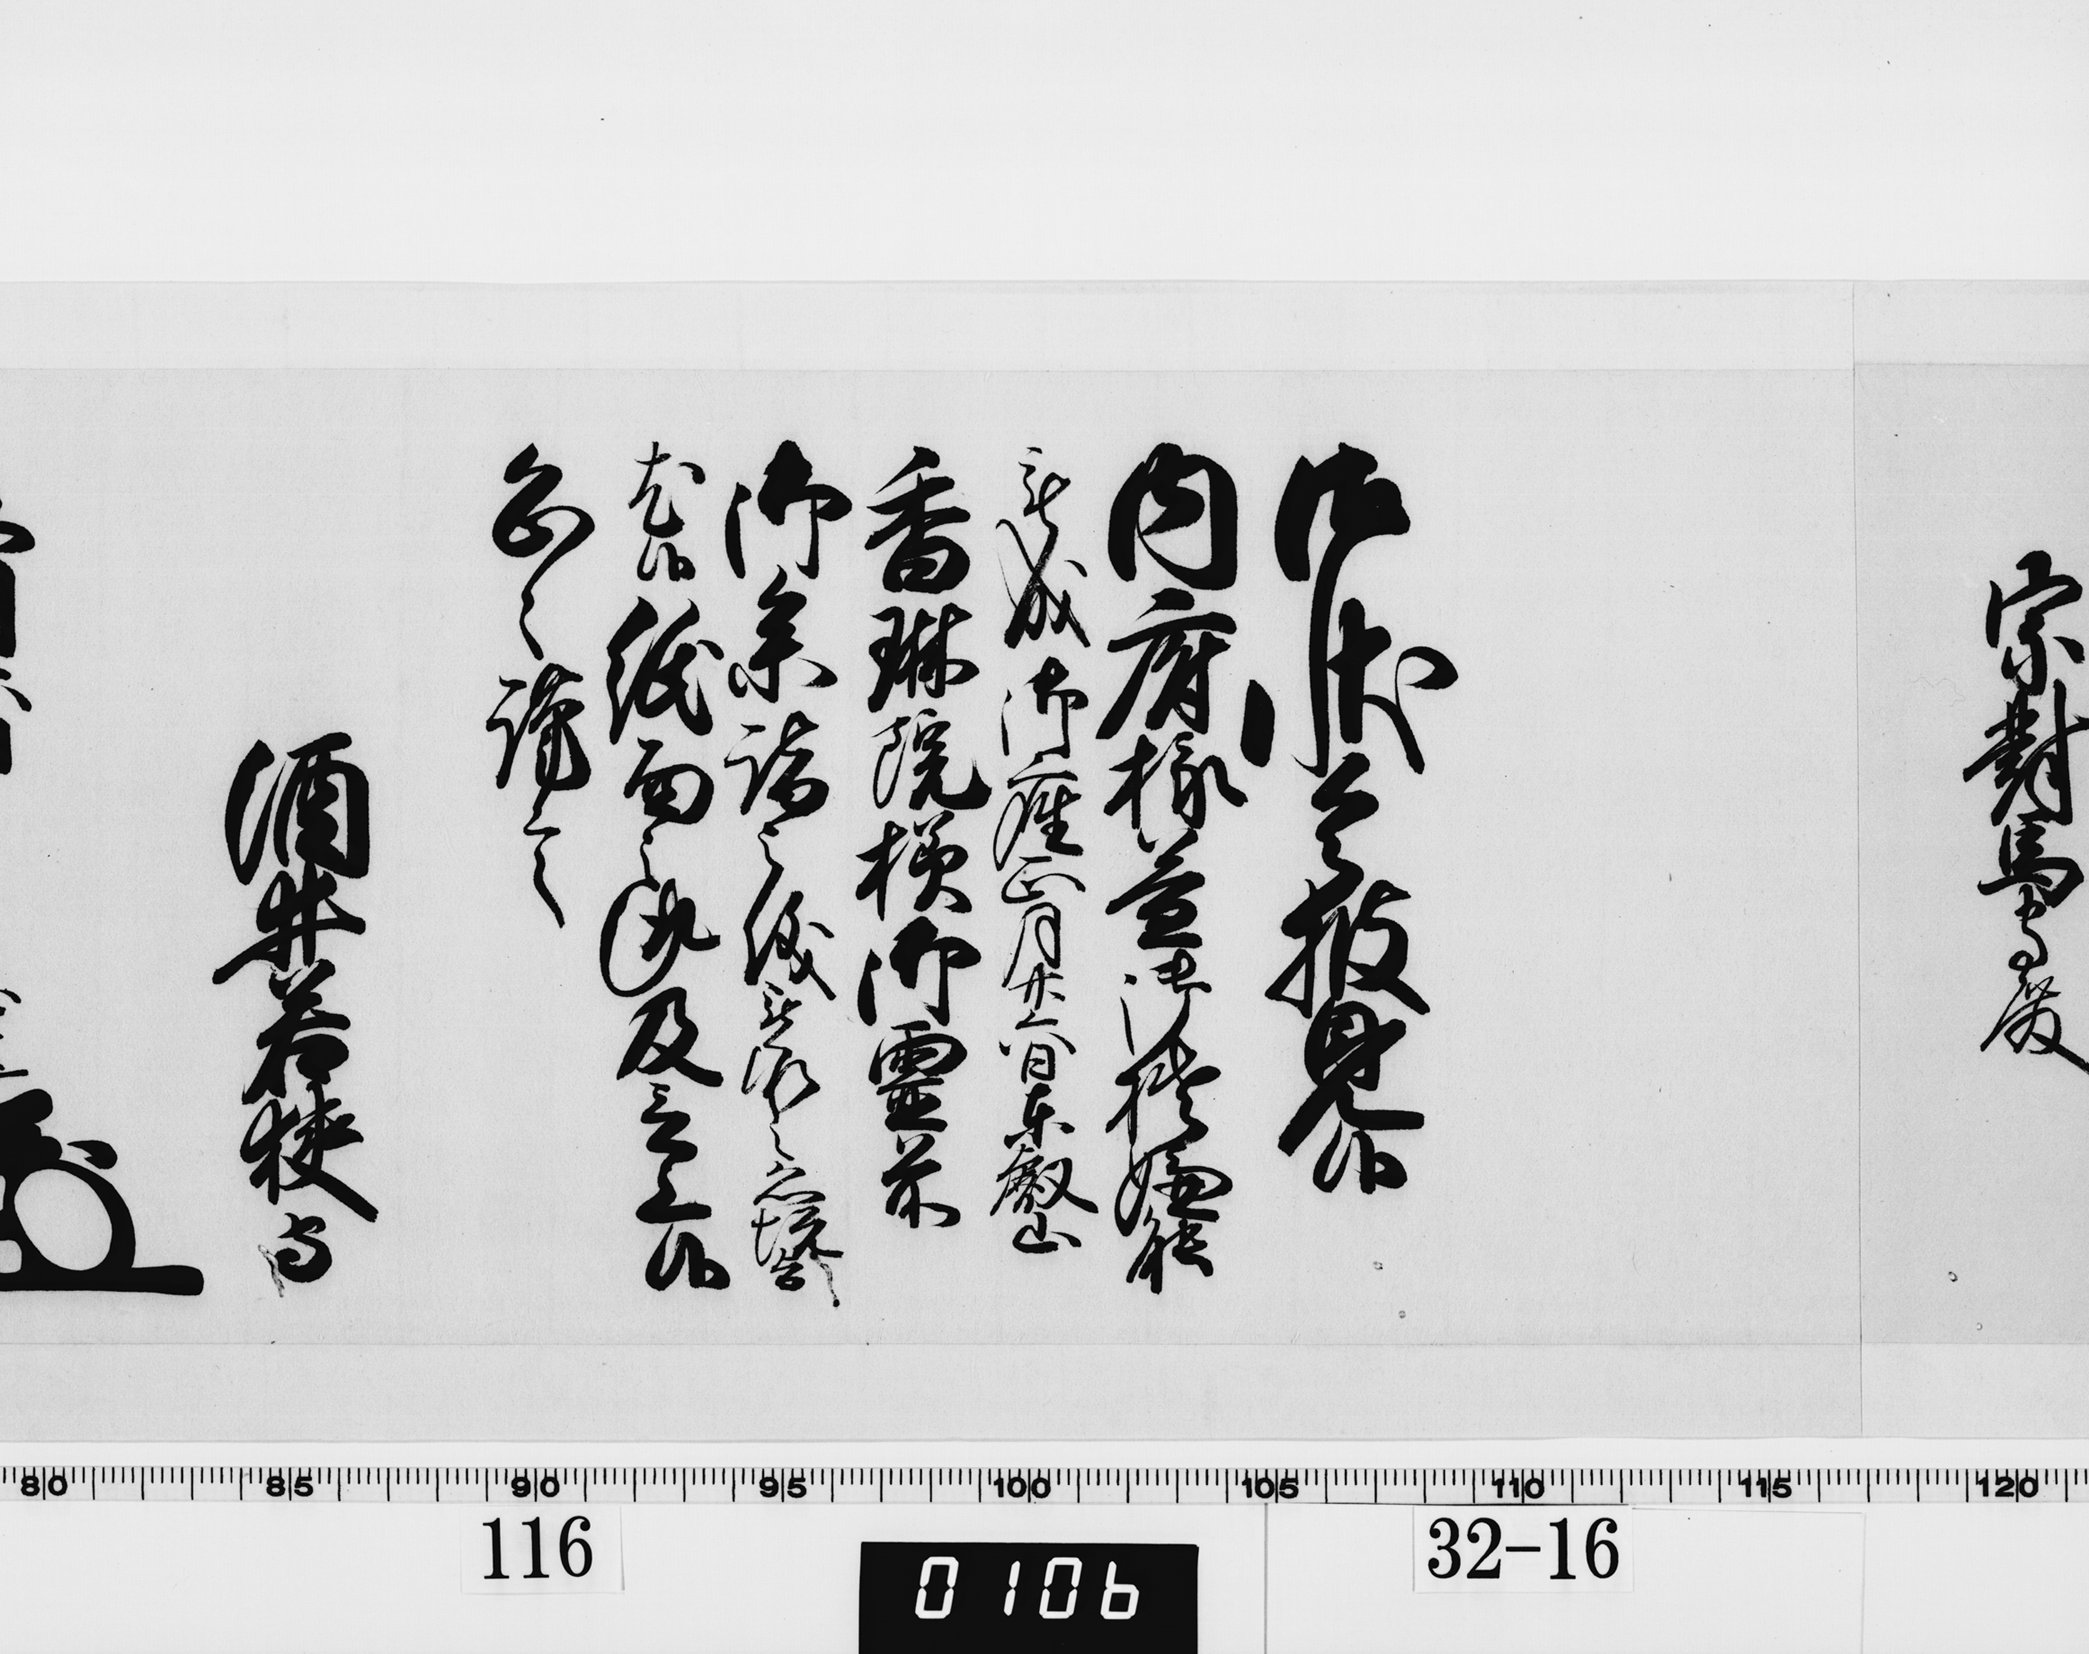 宗對馬守殿
御状令披見候
内府様益御機嫌能
被成御座正月廿六日東叡山
香琳院様御霊前
御参詣之儀被承之恐悦旨
尤候紙面之趣及言上候
恐々謹言
酒井若狭守
80 85 90 95 100 105 110 115 120
116
0106
32-16